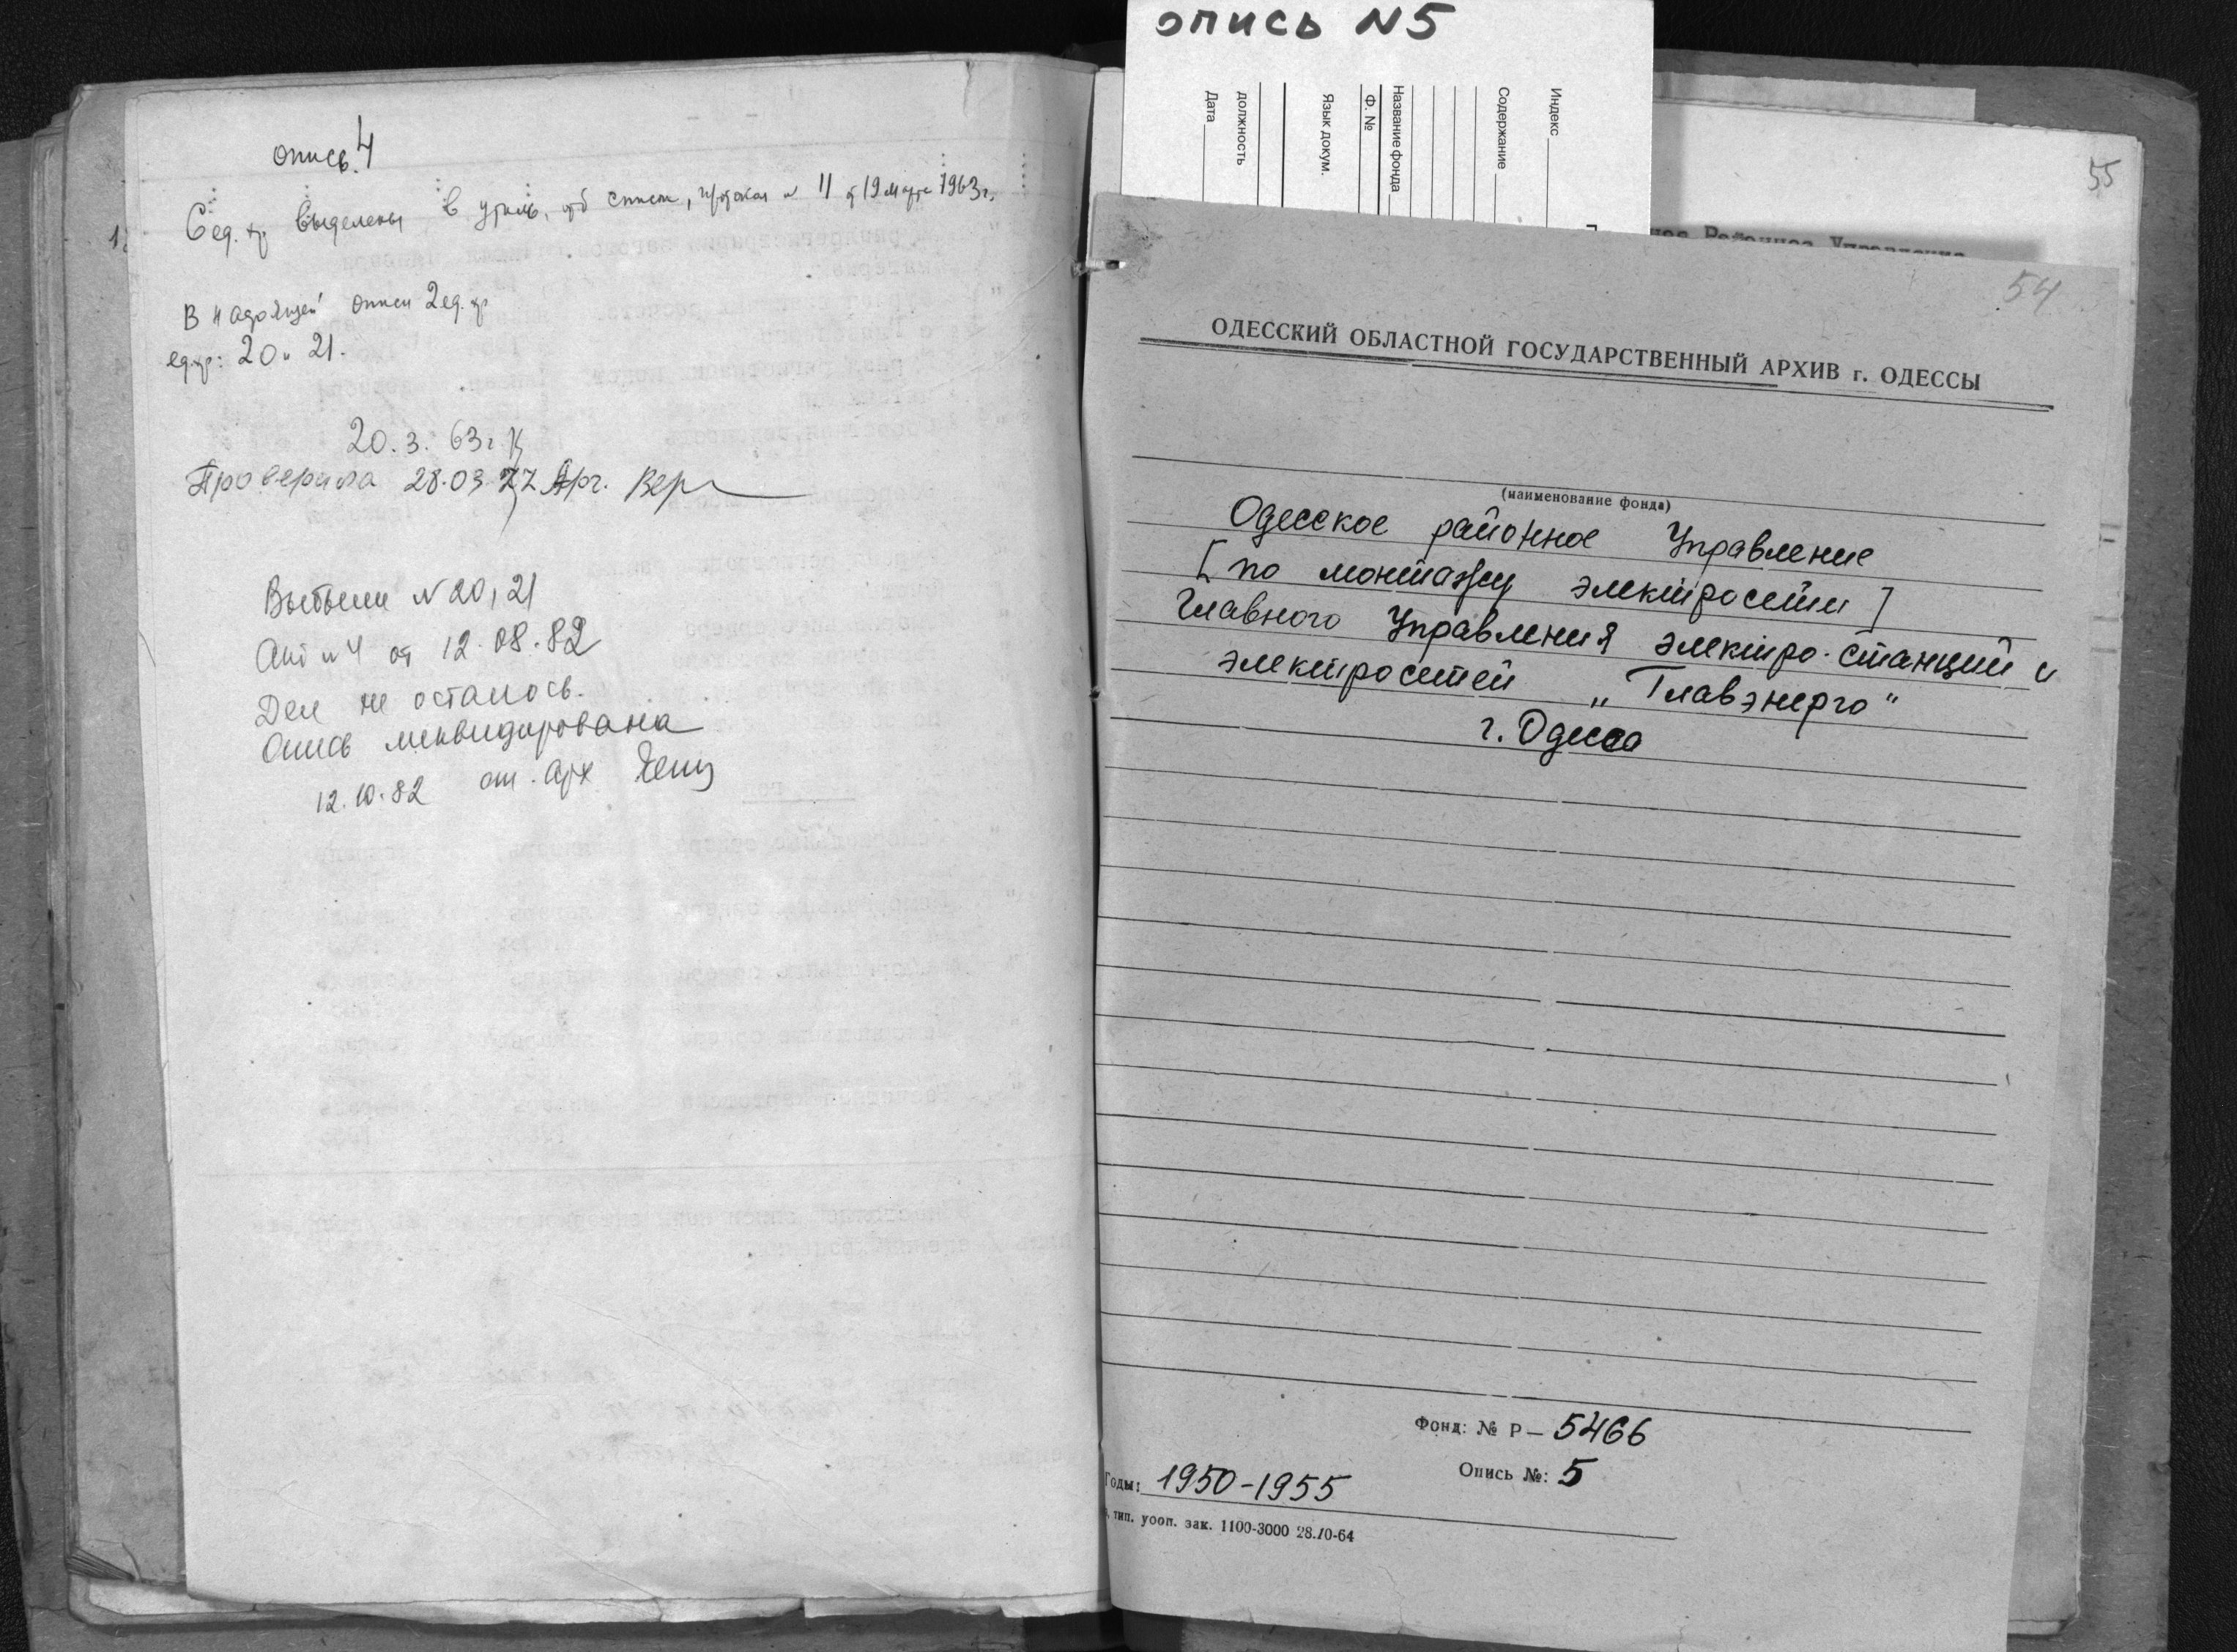 опись 4
6 ед. хр. выделены в утиль, об списан, протокол № 11 от 19 марта 1963 г.
В настоящей описи 2 ед. хр.
ед. хр: 20 и 21.
20.3.63 г.
Проверила 28.03.77 Арх.
Выбыли № 20, 21
Акт № 4 от 12.08.82
Дел не осталось.
Опись ликвидирована
12.10.82 ст. арх
опись N5
Индекс
Содержание
Название фонда
Ф. №
Язык докум.
должность
Дата
55
Районное Управление
54
ОДЕССКИЙ ОБЛАСТНОЙ ГОСУДАРСТВЕННЫЙ АРХИВ г. ОДЕССЫ
(наименование фонда)
Одесское районное Управление
[по монтажу электросети]
Главного Управления электро-станций и
электросетей „Главэнерго"
г. Одесса
Фонд: № Р – 5466
Опись №: 5
Годы: 1950-1955
тип. уооп. зак. 1100-3000 28.10-64